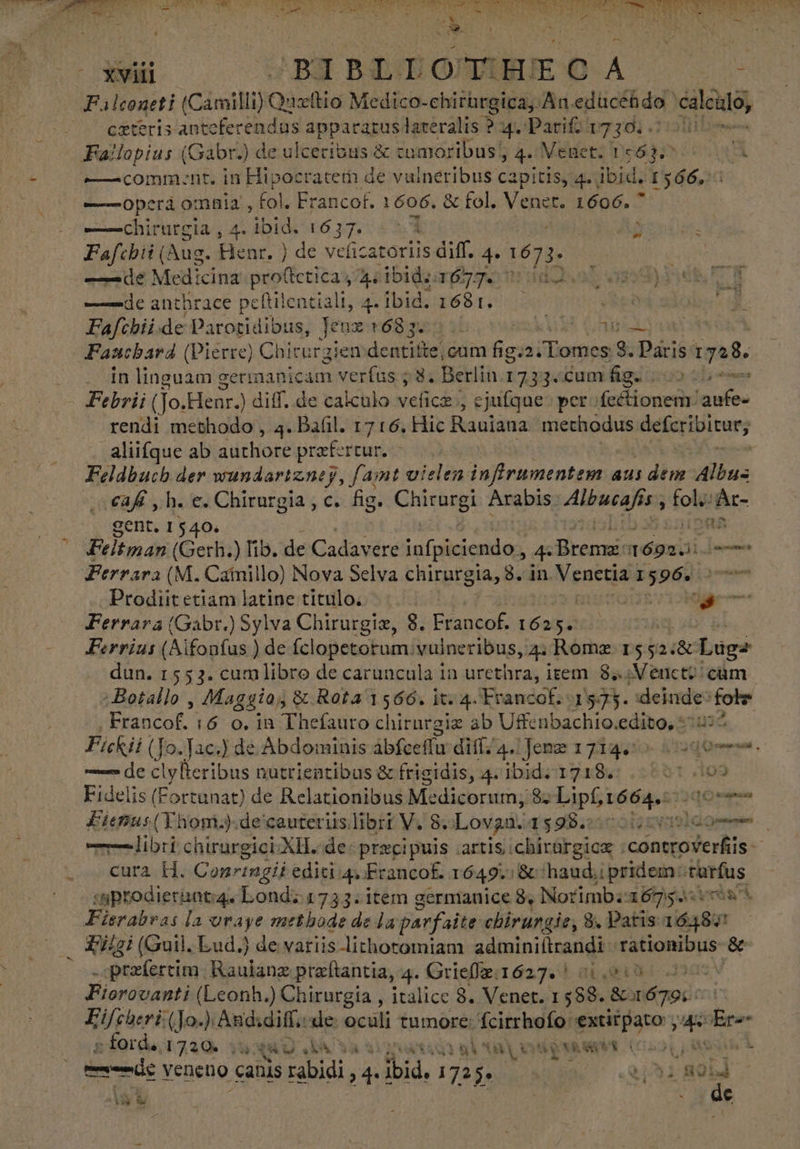 xviii BIBLIOTHECA
Falconeti (Camilli) Quæſtio Medico-chirurgica, An educendo calculo,
cæteris anteferendus apparatus lateralis? 4. Pariſ. 1730.
Fallopius (Gabr.) de ulceribus & tumoribus, 4. Venet. 1563.
——comment. in Hipocratem de vulneribus capitis, 4. ibid. 1566.
——opera omnia, fol. Francof. 1606. & fol. Venet. 1606.
——chirurgia, 4. ibid. 1637.
Faſchii (Aug. Henr.) de veſicatoriis diſſ. 4. 1673.
——de Medicina proſtetica, 4. ibid. 1677.
——de anthrace peſtilentiali, 4. ibid. 1681.
Faſchii de Parotidibus, Jenæ 1683.
Fauchard (Pierre) Chirurgien dentiſte, cum fig. 2. Tomes 8. Paris 1728.
in linguam germanicam verſus, 8. Berlin 1733. cum fig.
Febrii (Jo. Henr.) diſſ. de calculo veſicæ, ejuſque per ſectionem aufe-
rendi methodo, 4. Baſil. 1716. Hic Rauiana methodus deſcribitur,
aliiſque ab authore præfertur.
Feldbuch der wundartzney, ſamt vielen inſtrumentem aus dem Albu-
caſ, h. e. Chirurgia, c. fig. Chirurgi Arabis Albucaſis, fol. Ar-
gent. 1540.
Feltman (Gerh.) lib. de Cadavere inſpiciendo, 4. Bremæ 1692.
Ferrara (M. Camillo) Nova Selva chirurgia, 8. in Venetia 1596.
Prodiit etiam latine titulo.
Ferrara (Gabr.) Sylva Chirurgiæ, 8. Francof. 1625.
Ferrius (Alfonſus) de ſclopetorum vulneribus, 4. Romæ 1552. & Lug-
dun. 1553. cum libro de caruncula in urethra, item 8. Venet. cum
Botallo, Maggio, & Rota 1566. it. 4. Francof. 1575. deinde fol.
Francof. 16 0. in Theſauro chirurgiæ ab Uffenbachio edito.
Fickii (Jo. Jac.) de Abdominis abſceſſu diſſ. 4. Jenæ 1714.
—— de clyſteribus nutrientibus & frigidis, 4. ibid. 1718.
Fidelis (Fortunat) de Relationibus Medicorum, 8. Lipſ. 1664.
Fienus (Thom.) de cauteriis libri V. 8. Lovan. 1598.
——libri chirurgici XII. de præcipuis artis chirurgicæ controverſiis
cura H. Conringii editi 4. Francof. 1649. & haud pridem rurſus
prodierunt 4. Lond. 1733. item germanice 8. Norimb. 1675.
Fierabras la vraye methode de la parfaite chirurgie, 8. Patis 1648.
Filgi (Guil. Lud.) de variis lithotomiam adminiſtrandi rationibus &
præſertim Raulanæ præſtantia, 4. Grieſſæ 1627.
Fiorovanti (Leonh.) Chirurgia, italice 8. Venet. 1588. & 1679.
Fiſcheri (Jo.) And. diſſ. de oculi tumore ſcirrhoſo extirpato, 4. Er-
ford. 1720.
——de veneno canis rabidi, 4. ibid. 1725.
de